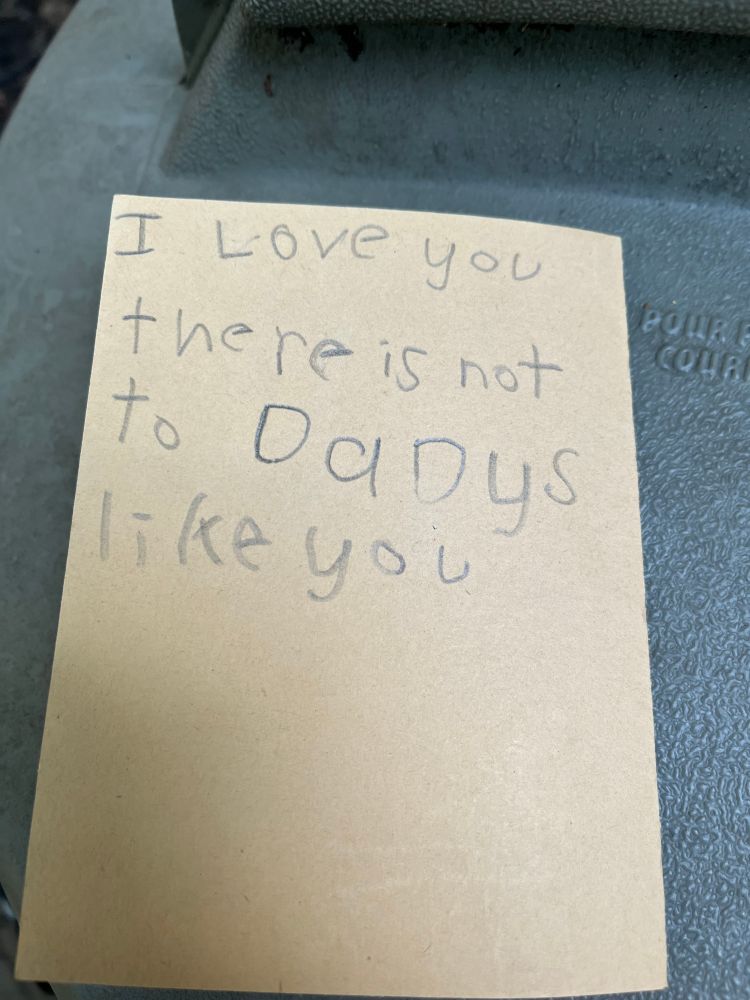 I Love you
there is not
to DaDys
like you
POUR
COUR